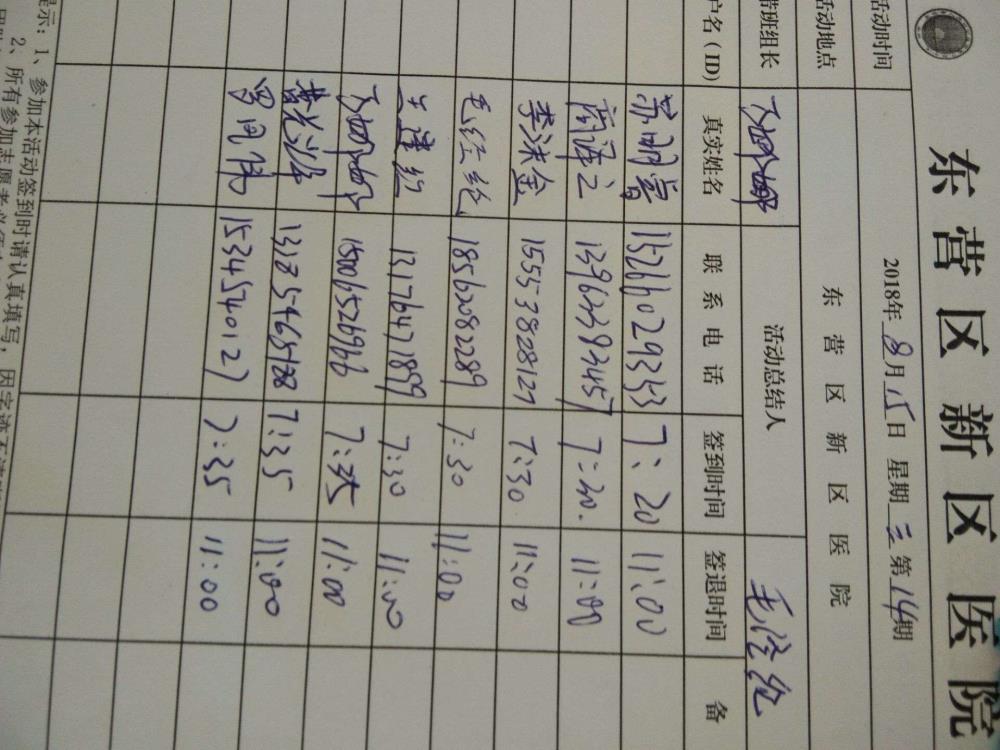 东营区新区医院
活动时间 2018年8月15日 星期三 第14期
活动地点 东营区新区医院
带班组长 活动总结人 毛经纶
户名(ID) 真实姓名 联系电话 签到时间 签退时间 备
15266029353 7:20 11:00
13962392457 7:20. 11:00
李洪金 15553828127 7:30 11:00
毛经纶 18562082289 7:30 11:00
王建红 13176471899 7:30 11:00
15006526966 7:35 11:00
7:35 11:00
15345454012) 7:35 11:00
示:1、参加本活动签到时请认真填写,因字迹不清
2、所有参加志愿者必须